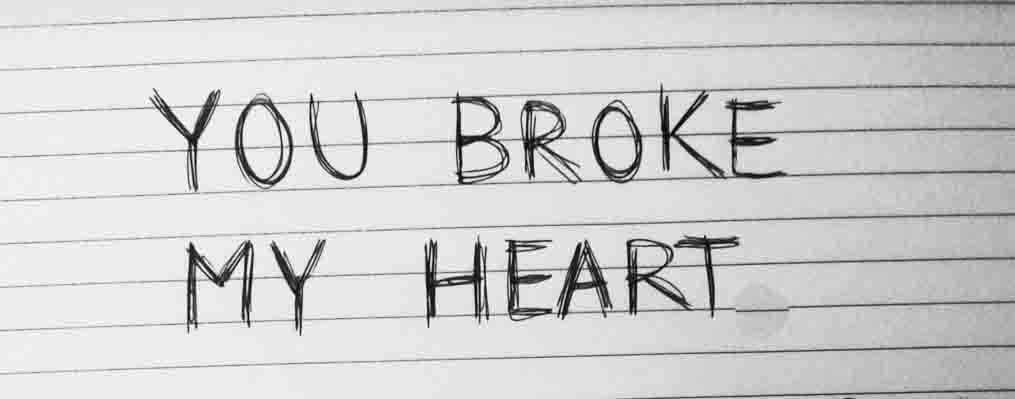 YOU BROKE
MY HEART